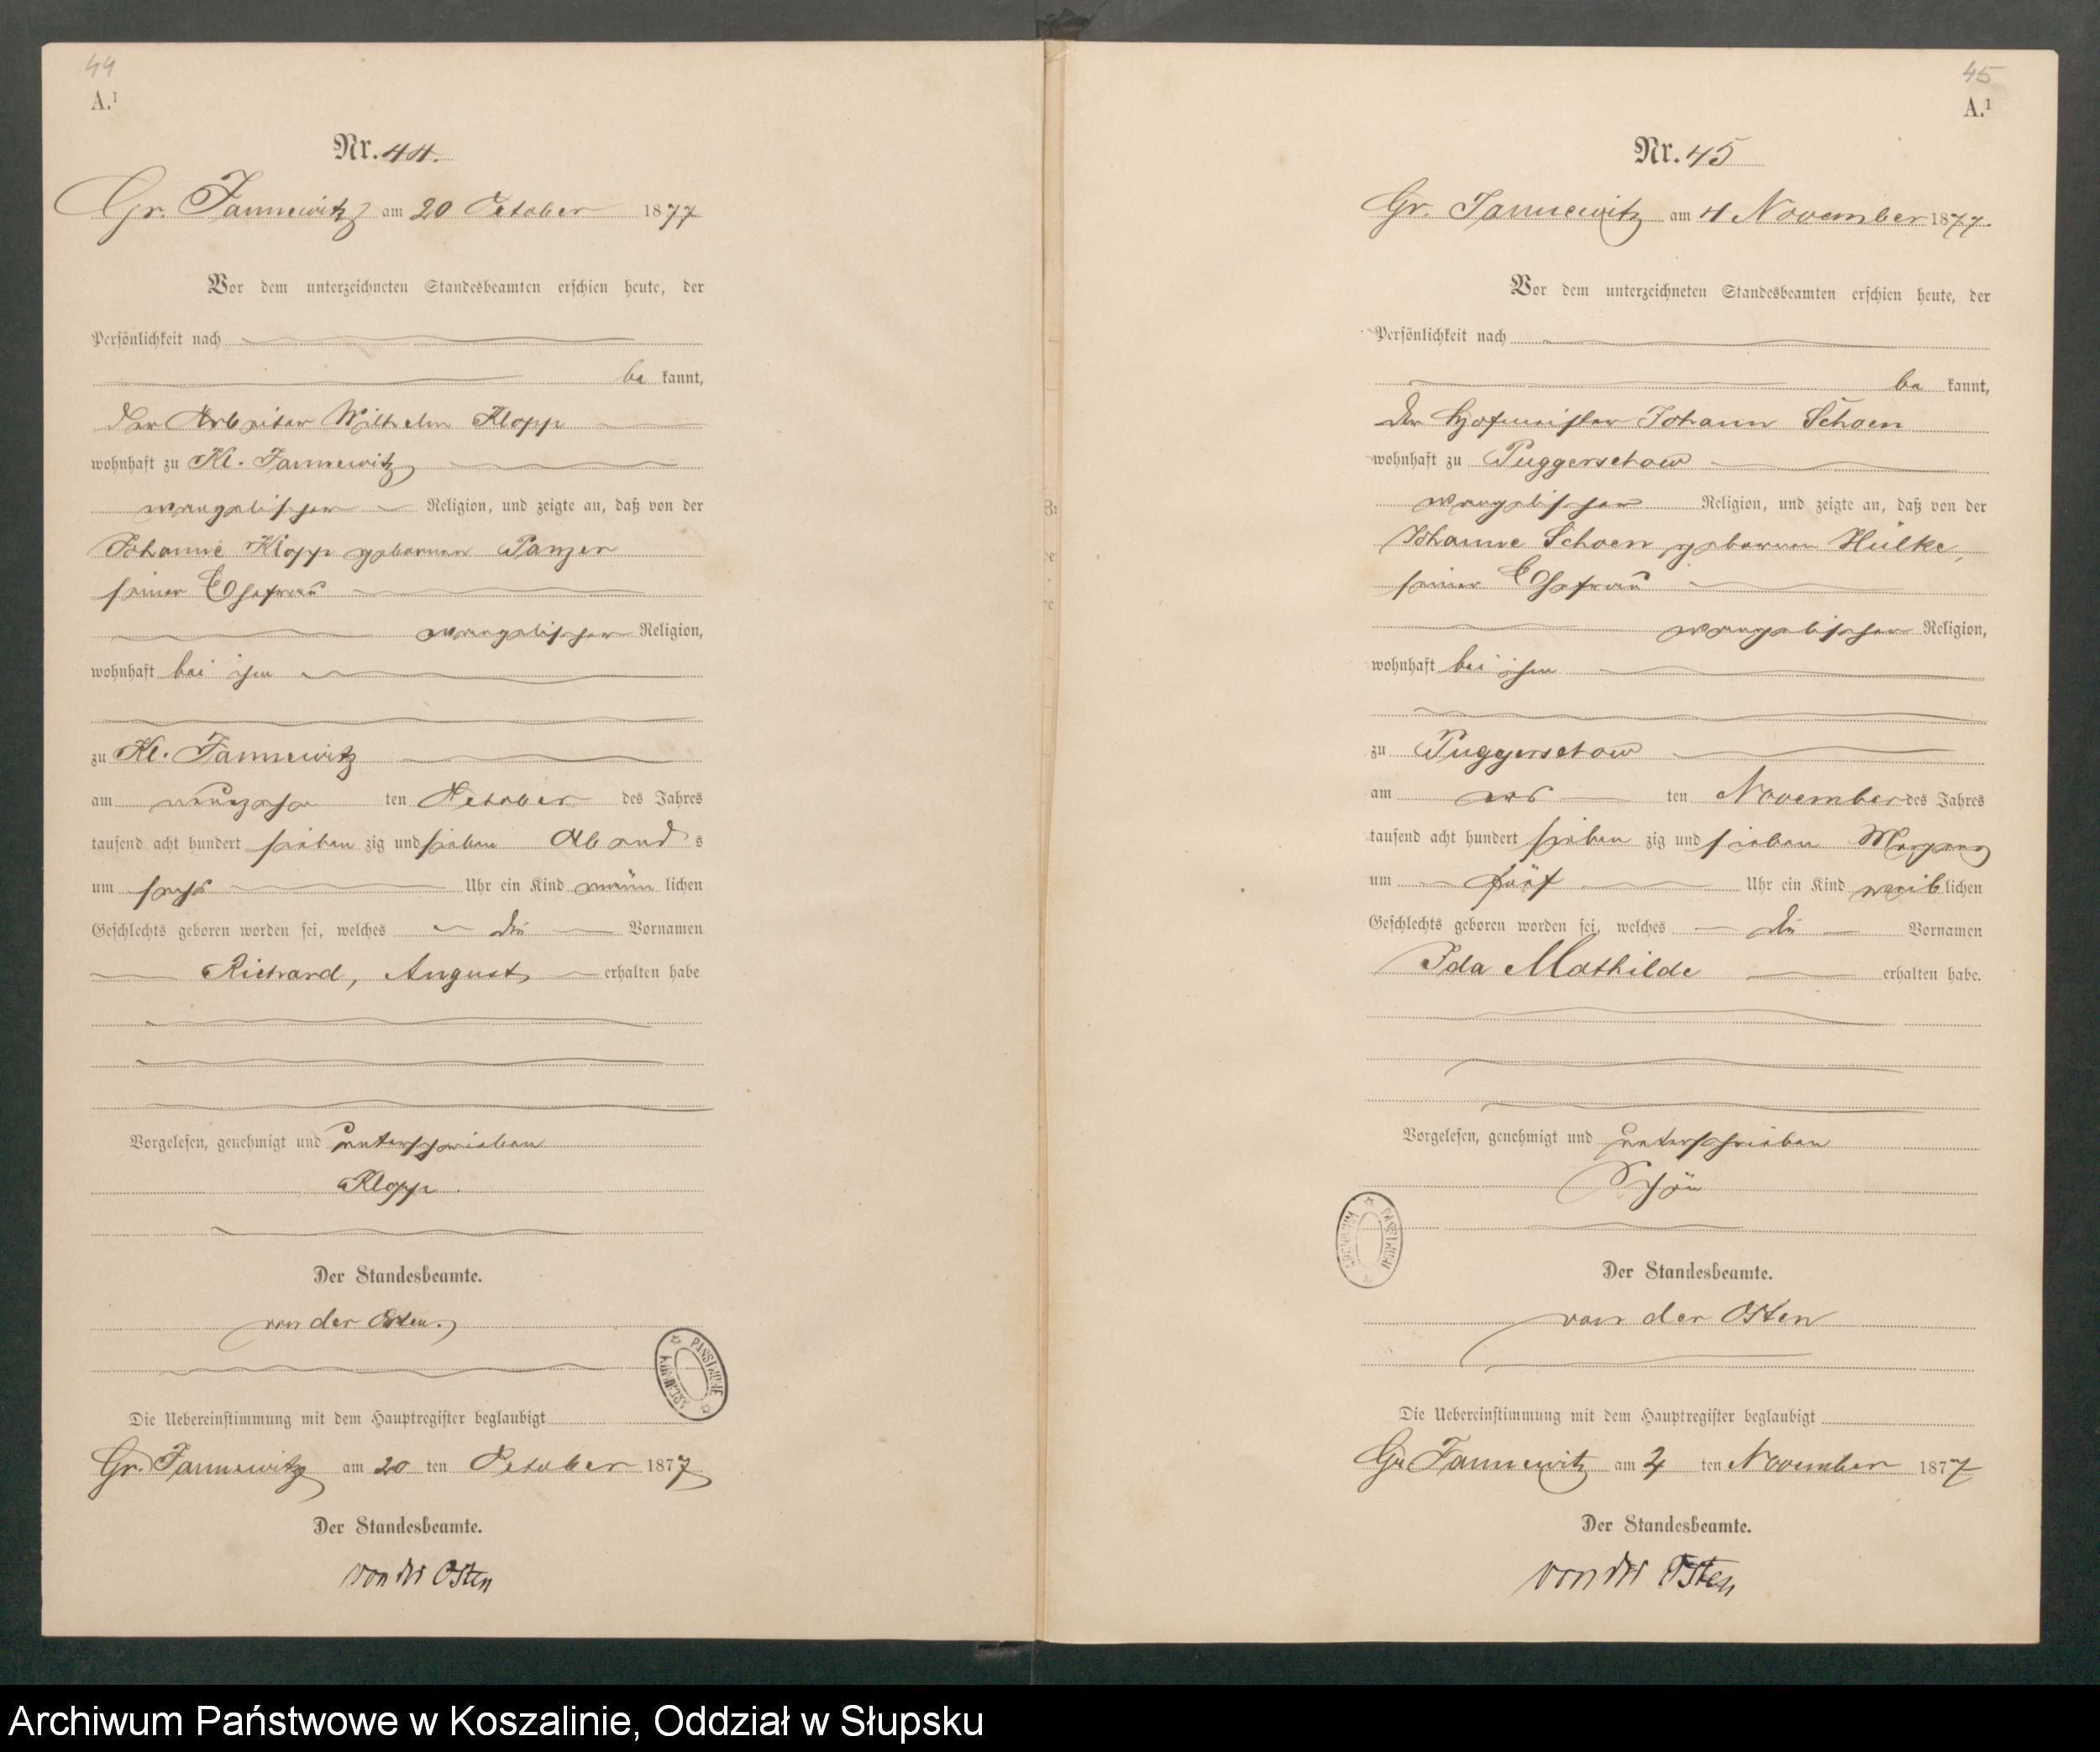 44
A.¹
Nr. 44.
Gr. Jannewitz am 20 October 1877
Vor dem unterzeichneten Standesbeamten erschien heute, der
Persönlichkeit nach
be kannt,
der Arbeiter Wilhelm Klopp
wohnhaft zu Kl. Jannewitz
evangelischer Religion, und zeigte an, daß von der
Johanne Klopp geborenen Panzer
seiner Ehefrau
evangelischer Religion,
wohnhaft bei ihm
zu Kl. Jannewitz
am neunzehn ten October des Jahres
tausend acht hundert sieben zig und sieben Abend s
um sechs Uhr ein Kind männ lichen
Geschlechts geboren worden sei, welches die Vornamen
Richard, August erhalten habe
Vorgelesen, genehmigt und unterschrieben
Klopp.
Der Standesbeamte.
von der Osten.
Die Uebereinstimmung mit dem Hauptregister beglaubigt
Gr. Jannewitz am 20 ten October 1877
Der Standesbeamte.
von der Osten
ARCHIWUM PAŃSTWOWE
45
A.¹
Nr. 45
Gr. Jannewitz am 4 November 1877.
Vor dem unterzeichneten Standesbeamten erschien heute, der
Persönlichkeit nach
be kannt,
der Hofmeister Johann Schoen
wohnhaft zu Puggerschow
evangelischer Religion, und zeigte an, daß von der
Johanne Schoen geborenen Hülke,
seiner Ehefrau
evangelischer Religion,
wohnhaft bei ihm
zu Puggerschow
am ten November des Jahres
tausend acht hundert sieben zig und sieben Morgens
um fünf Uhr ein Kind weib lichen
Geschlechts geboren worden sei, welches die Vornamen
Ida Mathilde erhalten habe.
Vorgelesen, genehmigt und unterschrieben
Schön
ARCHIWUM PAŃSTWOWE
Der Standesbeamte.
von der Osten
Die Uebereinstimmung mit dem Hauptregister beglaubigt
Gr Jannewitz am 4 ten November 1877
Der Standesbeamte.
von der Osten
Archiwum Państwowe w Koszalinie, Oddział w Słupsku